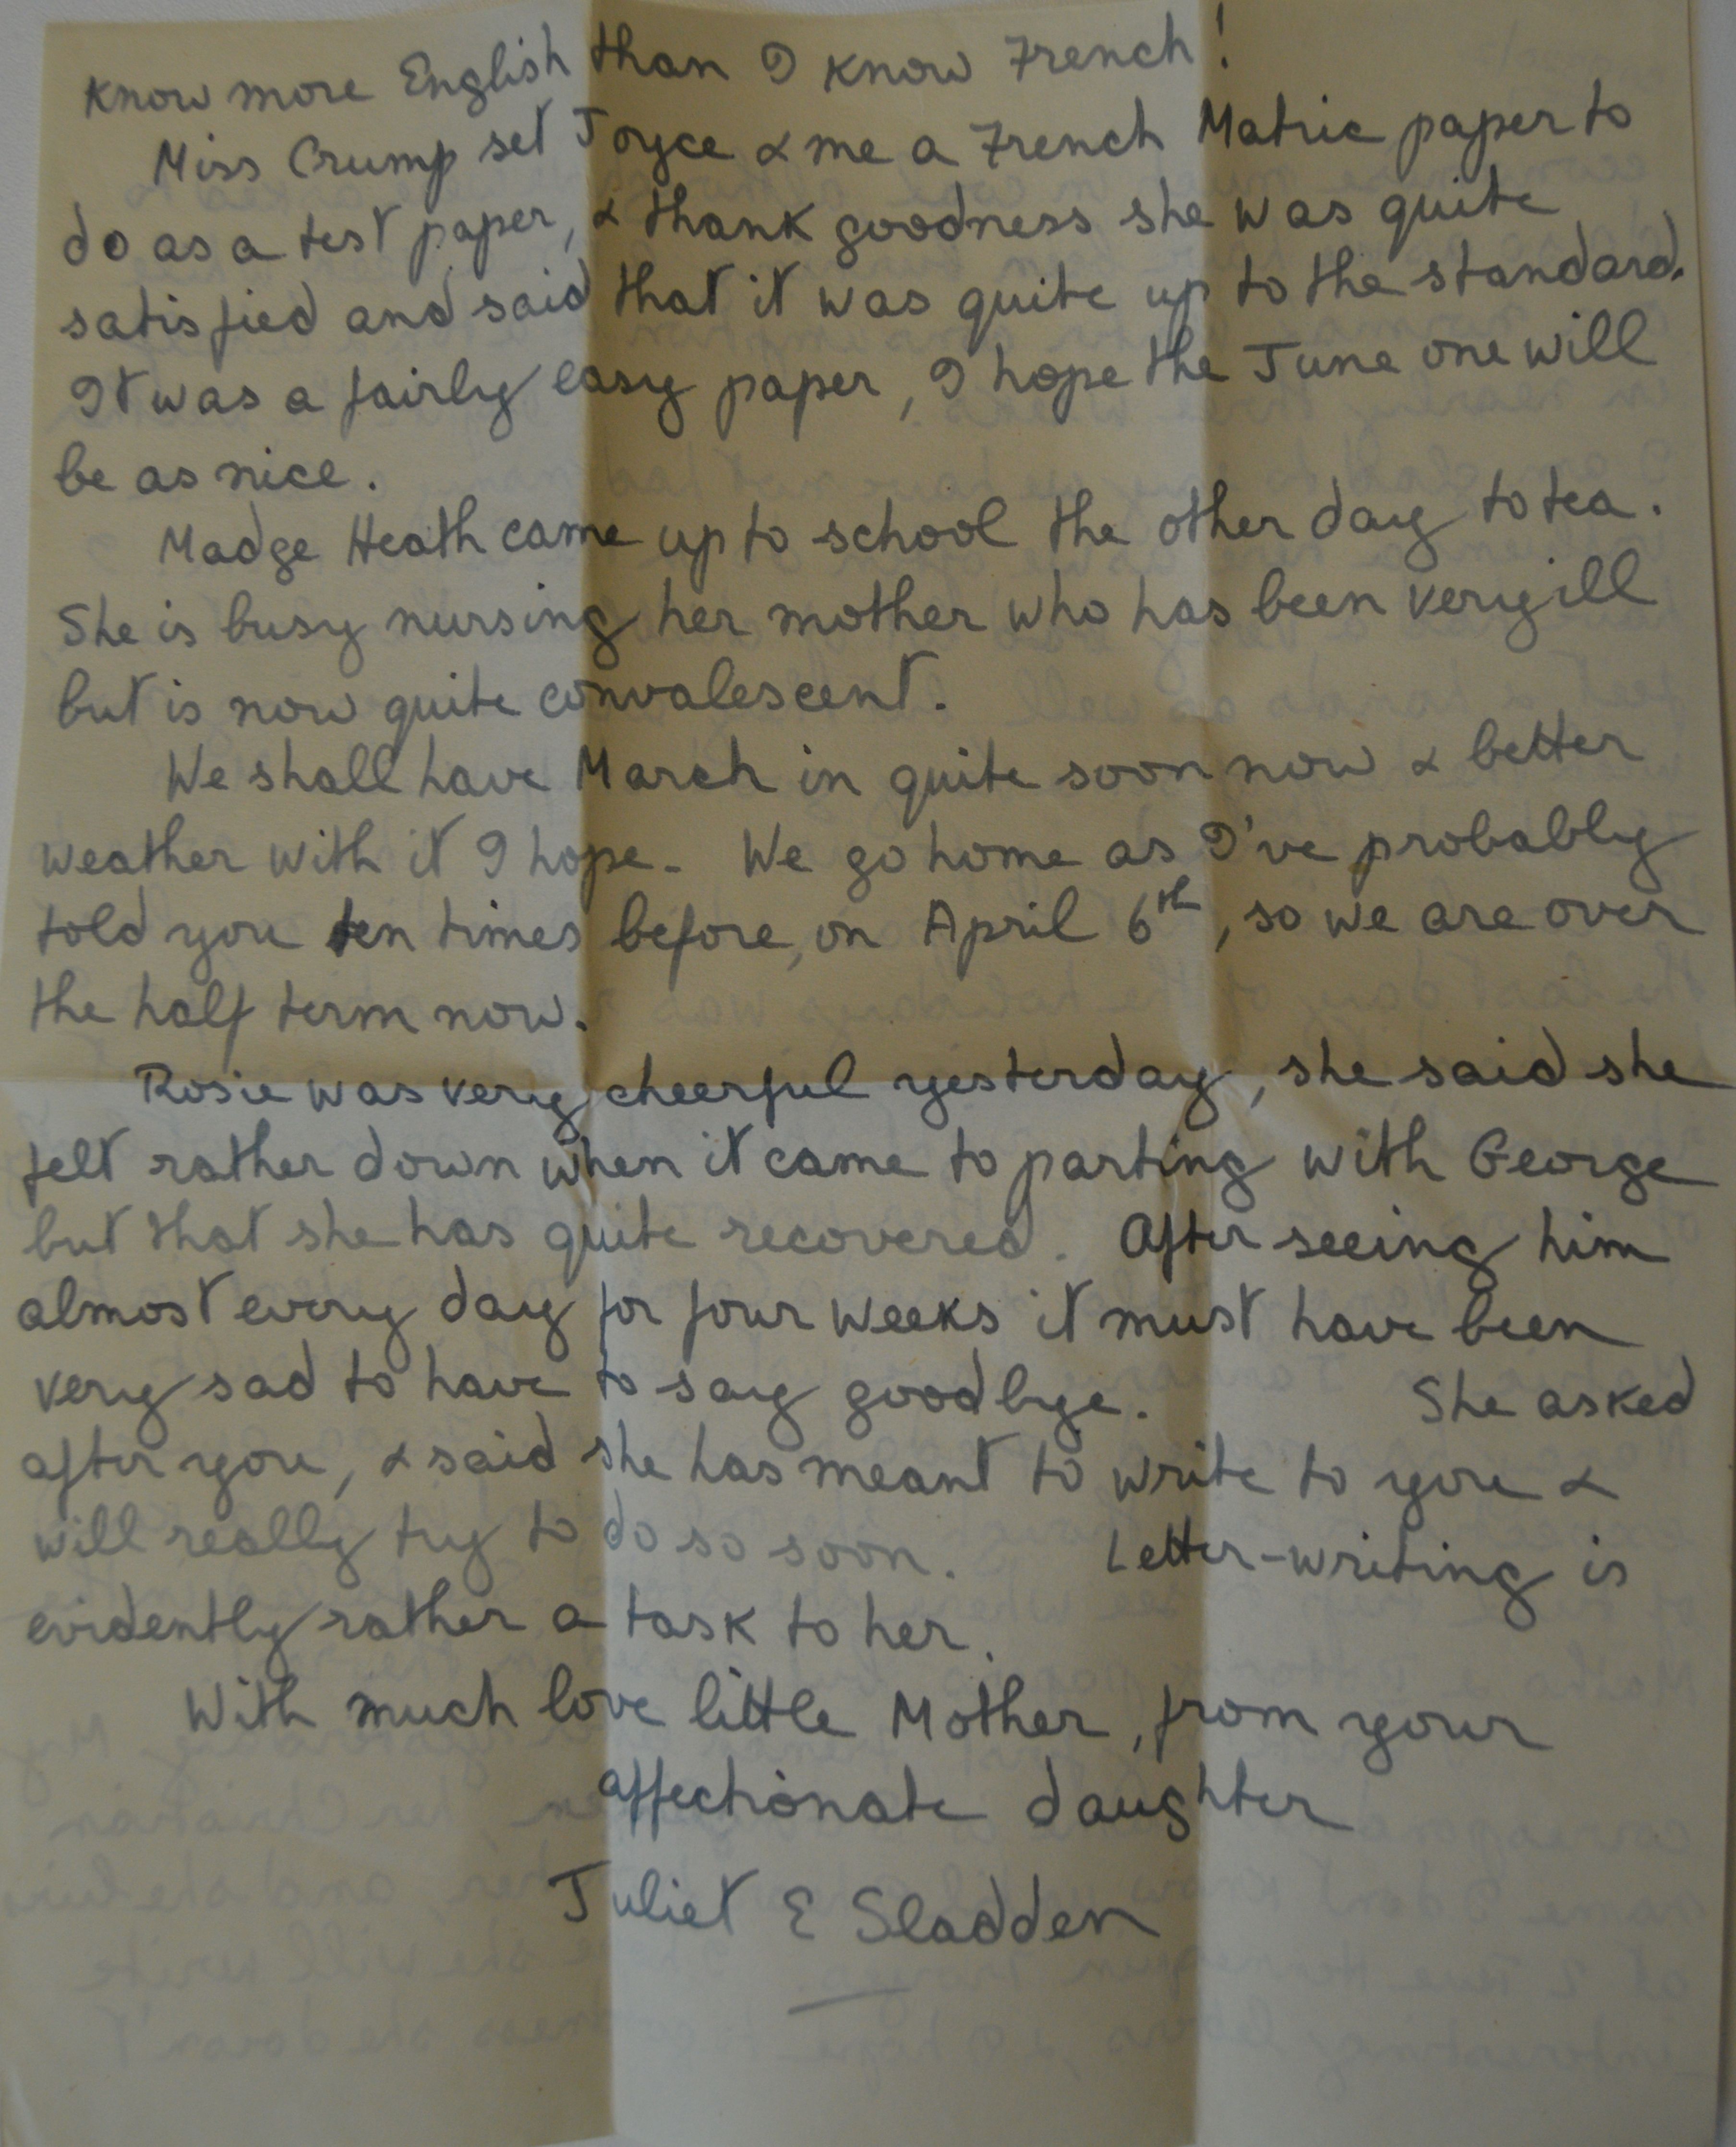 know more English than I know French!
Miss Crump set Joyce & me a French Matric paper to
do as a test paper, & thank goodness she was quite
satisfied and said that it was quite up to the standard.
It was a fairly easy paper, I hope the June one will
be as nice.
Madge Heath came up to school the other day to tea.
She is busy nursing her mother who has been very ill
but is now quite convalescent.
We shall have March in quite soon now & better
weather with it I hope. We go home as I've probably
told you ten times before, on April 6th, so we are over
the half term now.
Rosie was very cheerful yesterday, she said she
felt rather down when it came to parting with George
but that she has quite recovered. After seeing him
almost every day for four weeks it must have been
very sad to have to say goodbye. She asked
after you, & said she has meant to write to you &
will really try to do so soon. Letter-writing is
evidently rather a task to her.
With much love little Mother, from your
affectionate daughter
Juliet E Sladden